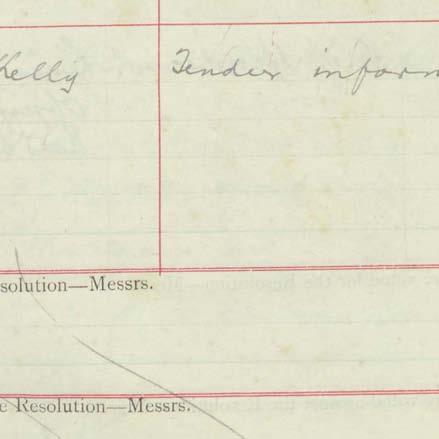 Kelly Tender inform
solution—Messrs.
e Resolution—Messrs.